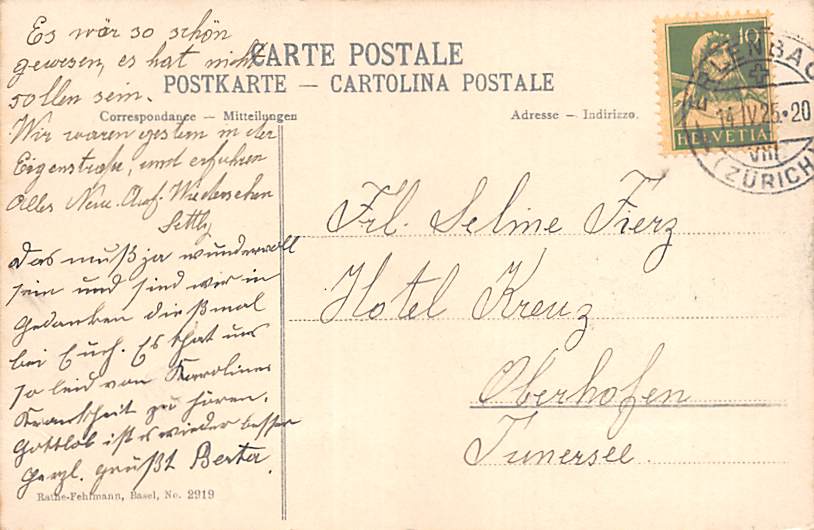 Es wär so schön
gewesen, es hat nicht
sollen sein.
Wir waren gestern in der
Eigenstraße, und erfuhren
Alles Neue. Auf Wiedersehen
Settly
Das muß ja wundervoll
sein und sind wir in
Gedanken dießmal
bei Euch. Es that uns
so leid von Karolines
Krankheit zu hören.
Gottlob ist es wieder besser
Herzl. grüßt Berta.
CARTE POSTALE
POSTKARTE — CARTOLINA POSTALE
Correspondance — Mitteilungen
Adresse — Indirizzo.
10
HELVETIA
ERLENBAC
14.IV.25•20
VIII
(ZÜRICH)
Frl. Seline Fierz
Hotel Kreuz
Oberhofen
Tunersee.
Rathe-Fehlmann, Basel, No. 2919